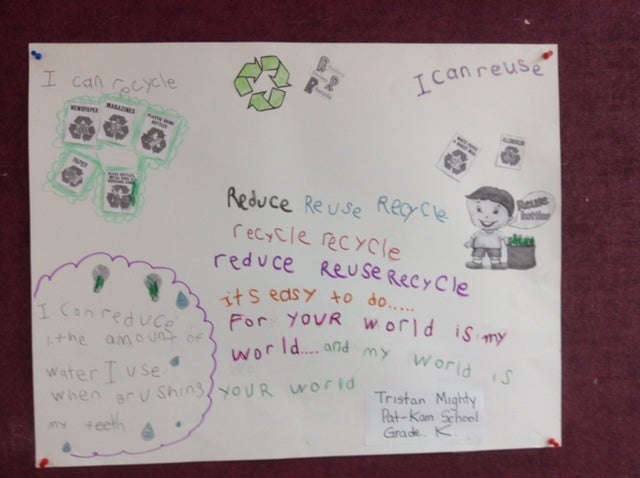 I can recycle
I can reuse
NEWSPAPER
MAGAZINES
PAPER
ALUMINUM
Reuse
bottles
Reduce Reuse Recycle
recycle recycle
reduce Reuse Recycle
it's easy to do.....
For your world is my
world.... and my world is
your world
I can reduce
the amount of
water I use
when Brushing
my teeth
Tristan Mighty
Pat-Kam School
Grade. K